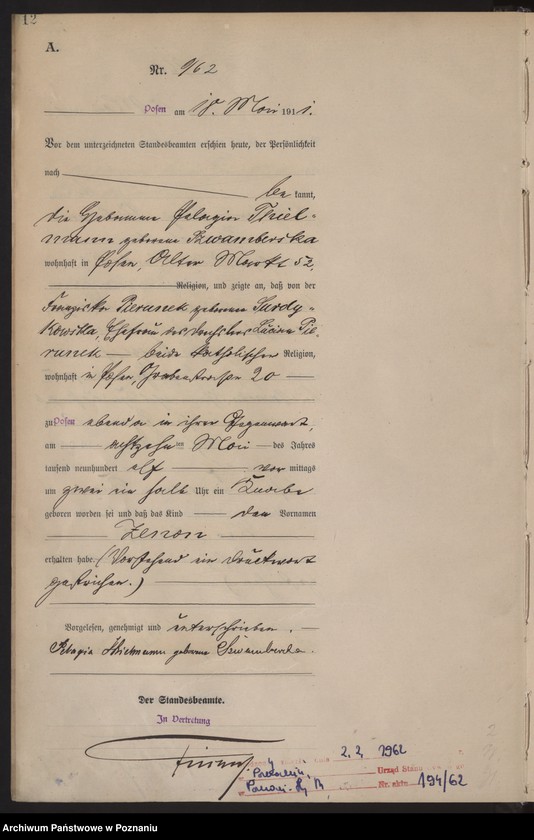 12
A.
Nr. 962
Posen am 18. Mai 1911.
Vor dem unterzeichneten Standesbeamten erschien heute, der Persönlichkeit
nach
be kannt,
die Hebamme Pelagia Thiel-
mann geborene
wohnhaft in Posen, Alter Markt 52,
Religion, und zeigte an, daß von der
Franziska Pierunek geborene Surdy-
kowska, Ehefrau des Lucian Pie-
runek — beide katholischer Religion,
wohnhaft in Posen, Grabenstrasse 20
zu Posen ebenda in ihrer Gegenwart,
am achtzehnten Mai des Jahres
tausend neunhundert elf vor mittags
um zwei ein halb Uhr ein Knabe
geboren worden sei und daß das Kind den Vornamen
Zenon
erhalten habe. (Vorstehend ein Druckwort
gestrichen.)
Vorgelesen, genehmigt und unterschrieben.
Pelagia Thielmann geborene
Der Standesbeamte.
In Vertretung
2. 2. 1962
Urząd Stanu
Nr. aktu 194/62
Archiwum Państwowe w Poznaniu